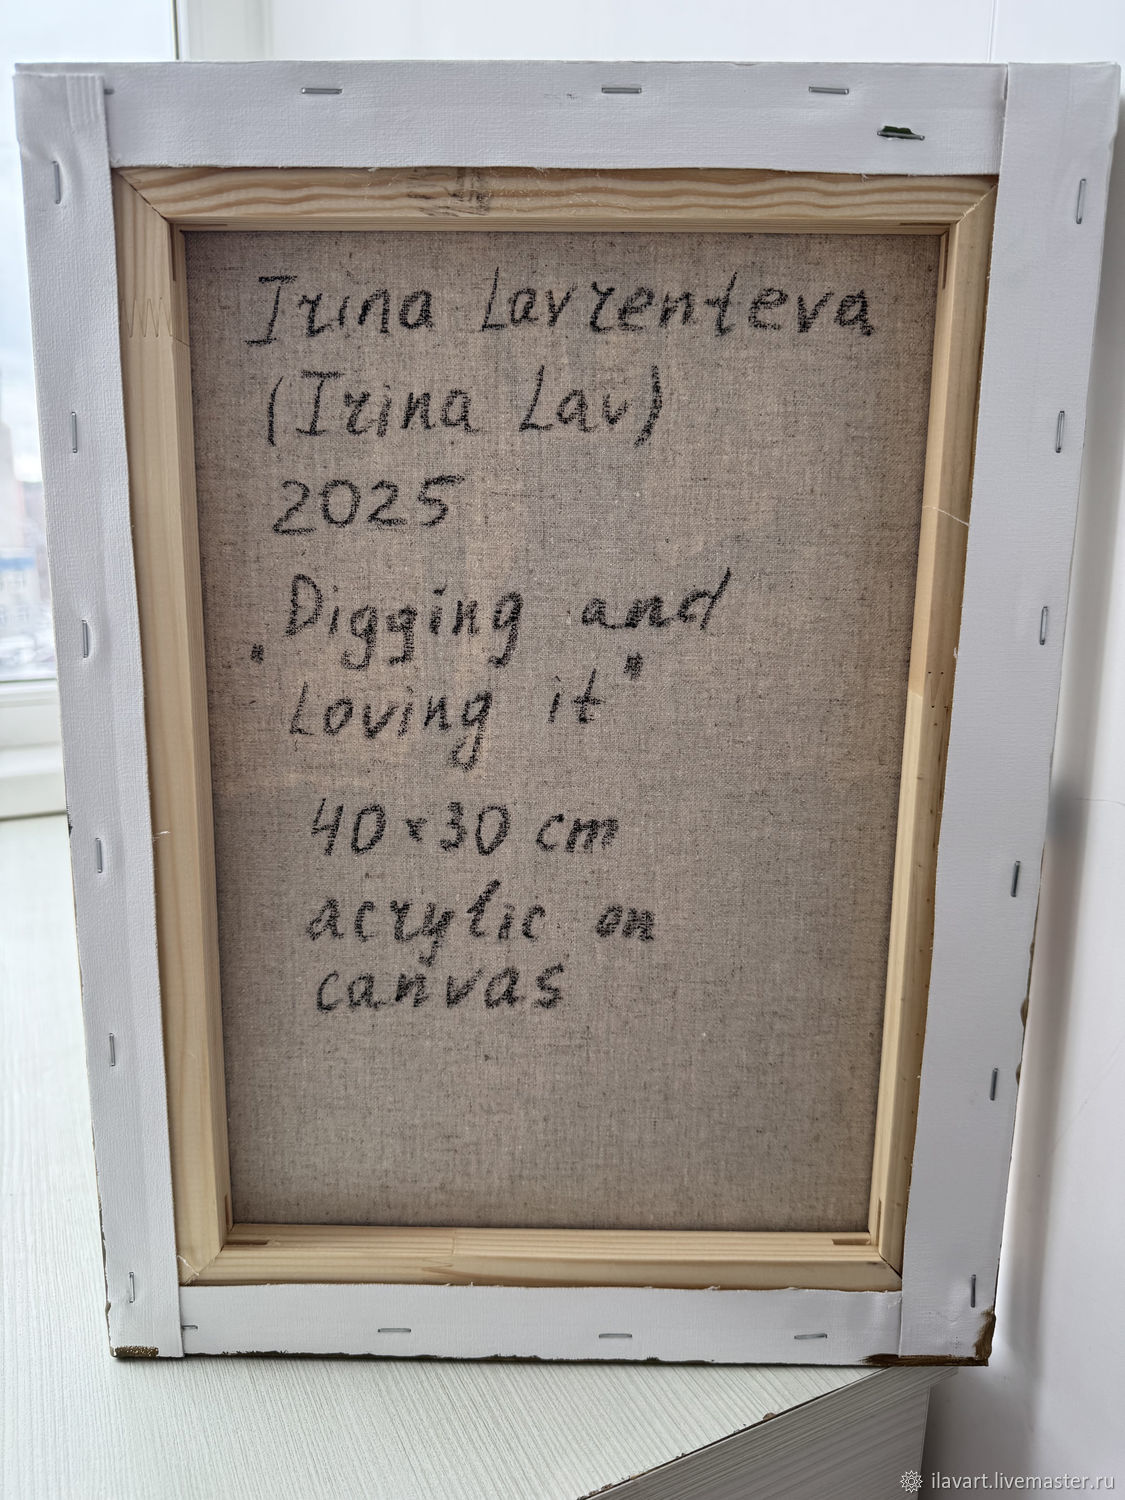 Irina Lavrenteva
(Irina Lav)
2025
"Digging and
Loving it"
40×30 cm
acrylic on
canvas
ilavart.livemaster.ru